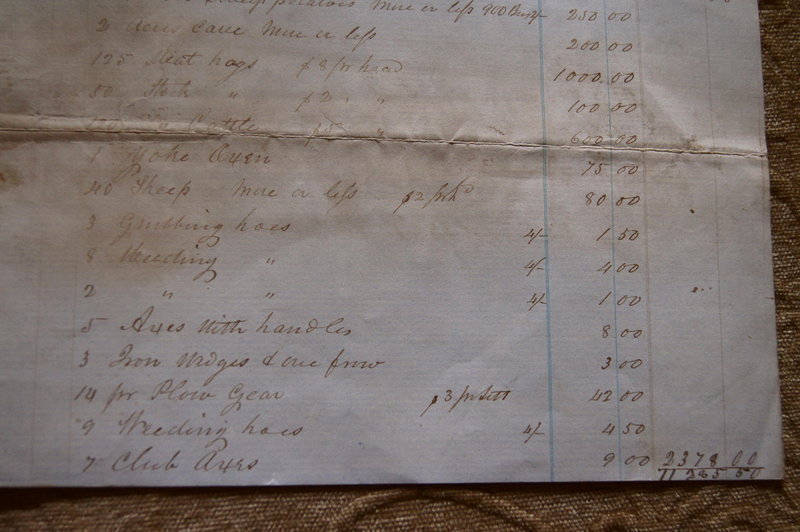 Sweet potatoes More or less 900 Bus 250 00
2 Acres Cane More or less 200 00
125 Meat hogs $8 pr head 1000.00
50 Stock " $2 " " 100 00
Cattle $5 " 600 00
1 Yoke Oxen 75 00
40 Sheep More or less $2 pr hd 80 00
3 Grubbing hoes 4/- 1 50
8 Weeding " 4/- 4 00
2 " " 4/- 1 00
5 Axes With handles 8 00
3 Iron Wedges & one frow 3 00
14 pr Plow Gear $3 pr Sett 42 00
9 Weeding hoes 4/- 4 50
7 Club Axes 9 00 2378 00
71 285 50